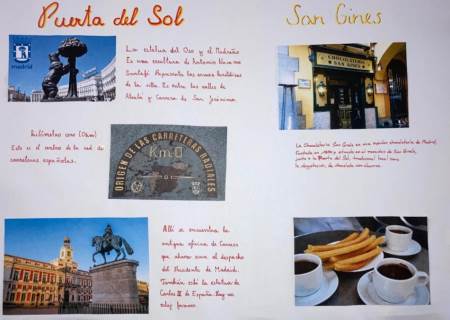 Puerta del Sol
madrid
La estatua del Oso y el Madroño
Es una escultura de Antonio Navarro
Santafé. Representa las armas heráldicas
de la villa. Es entre las calles de
Alcalá y Carrera de San Jerónimo.
Kilómetro cero (0km)
Este es el centro de la red de
carreteras españolas.
ORIGEN DE LAS CARRETERAS RADIALES
Km.0
Allí se encuentra la
antigua oficina de Correos
que ahora sirve el despacho
del Presidente de Madrid.
También está la estatua de
Carlos III de España. Hay un
reloj famoso.
San Gines
CHOCOLATERIA
SAN GINES
La Chocolatería San Ginés es una chocolatería de Madrid,
fundada en 1894 y situada en el pasadizo de San Ginés,
junto a la Puerta del Sol, tradicional local para
la degustación de chocolate con churros.